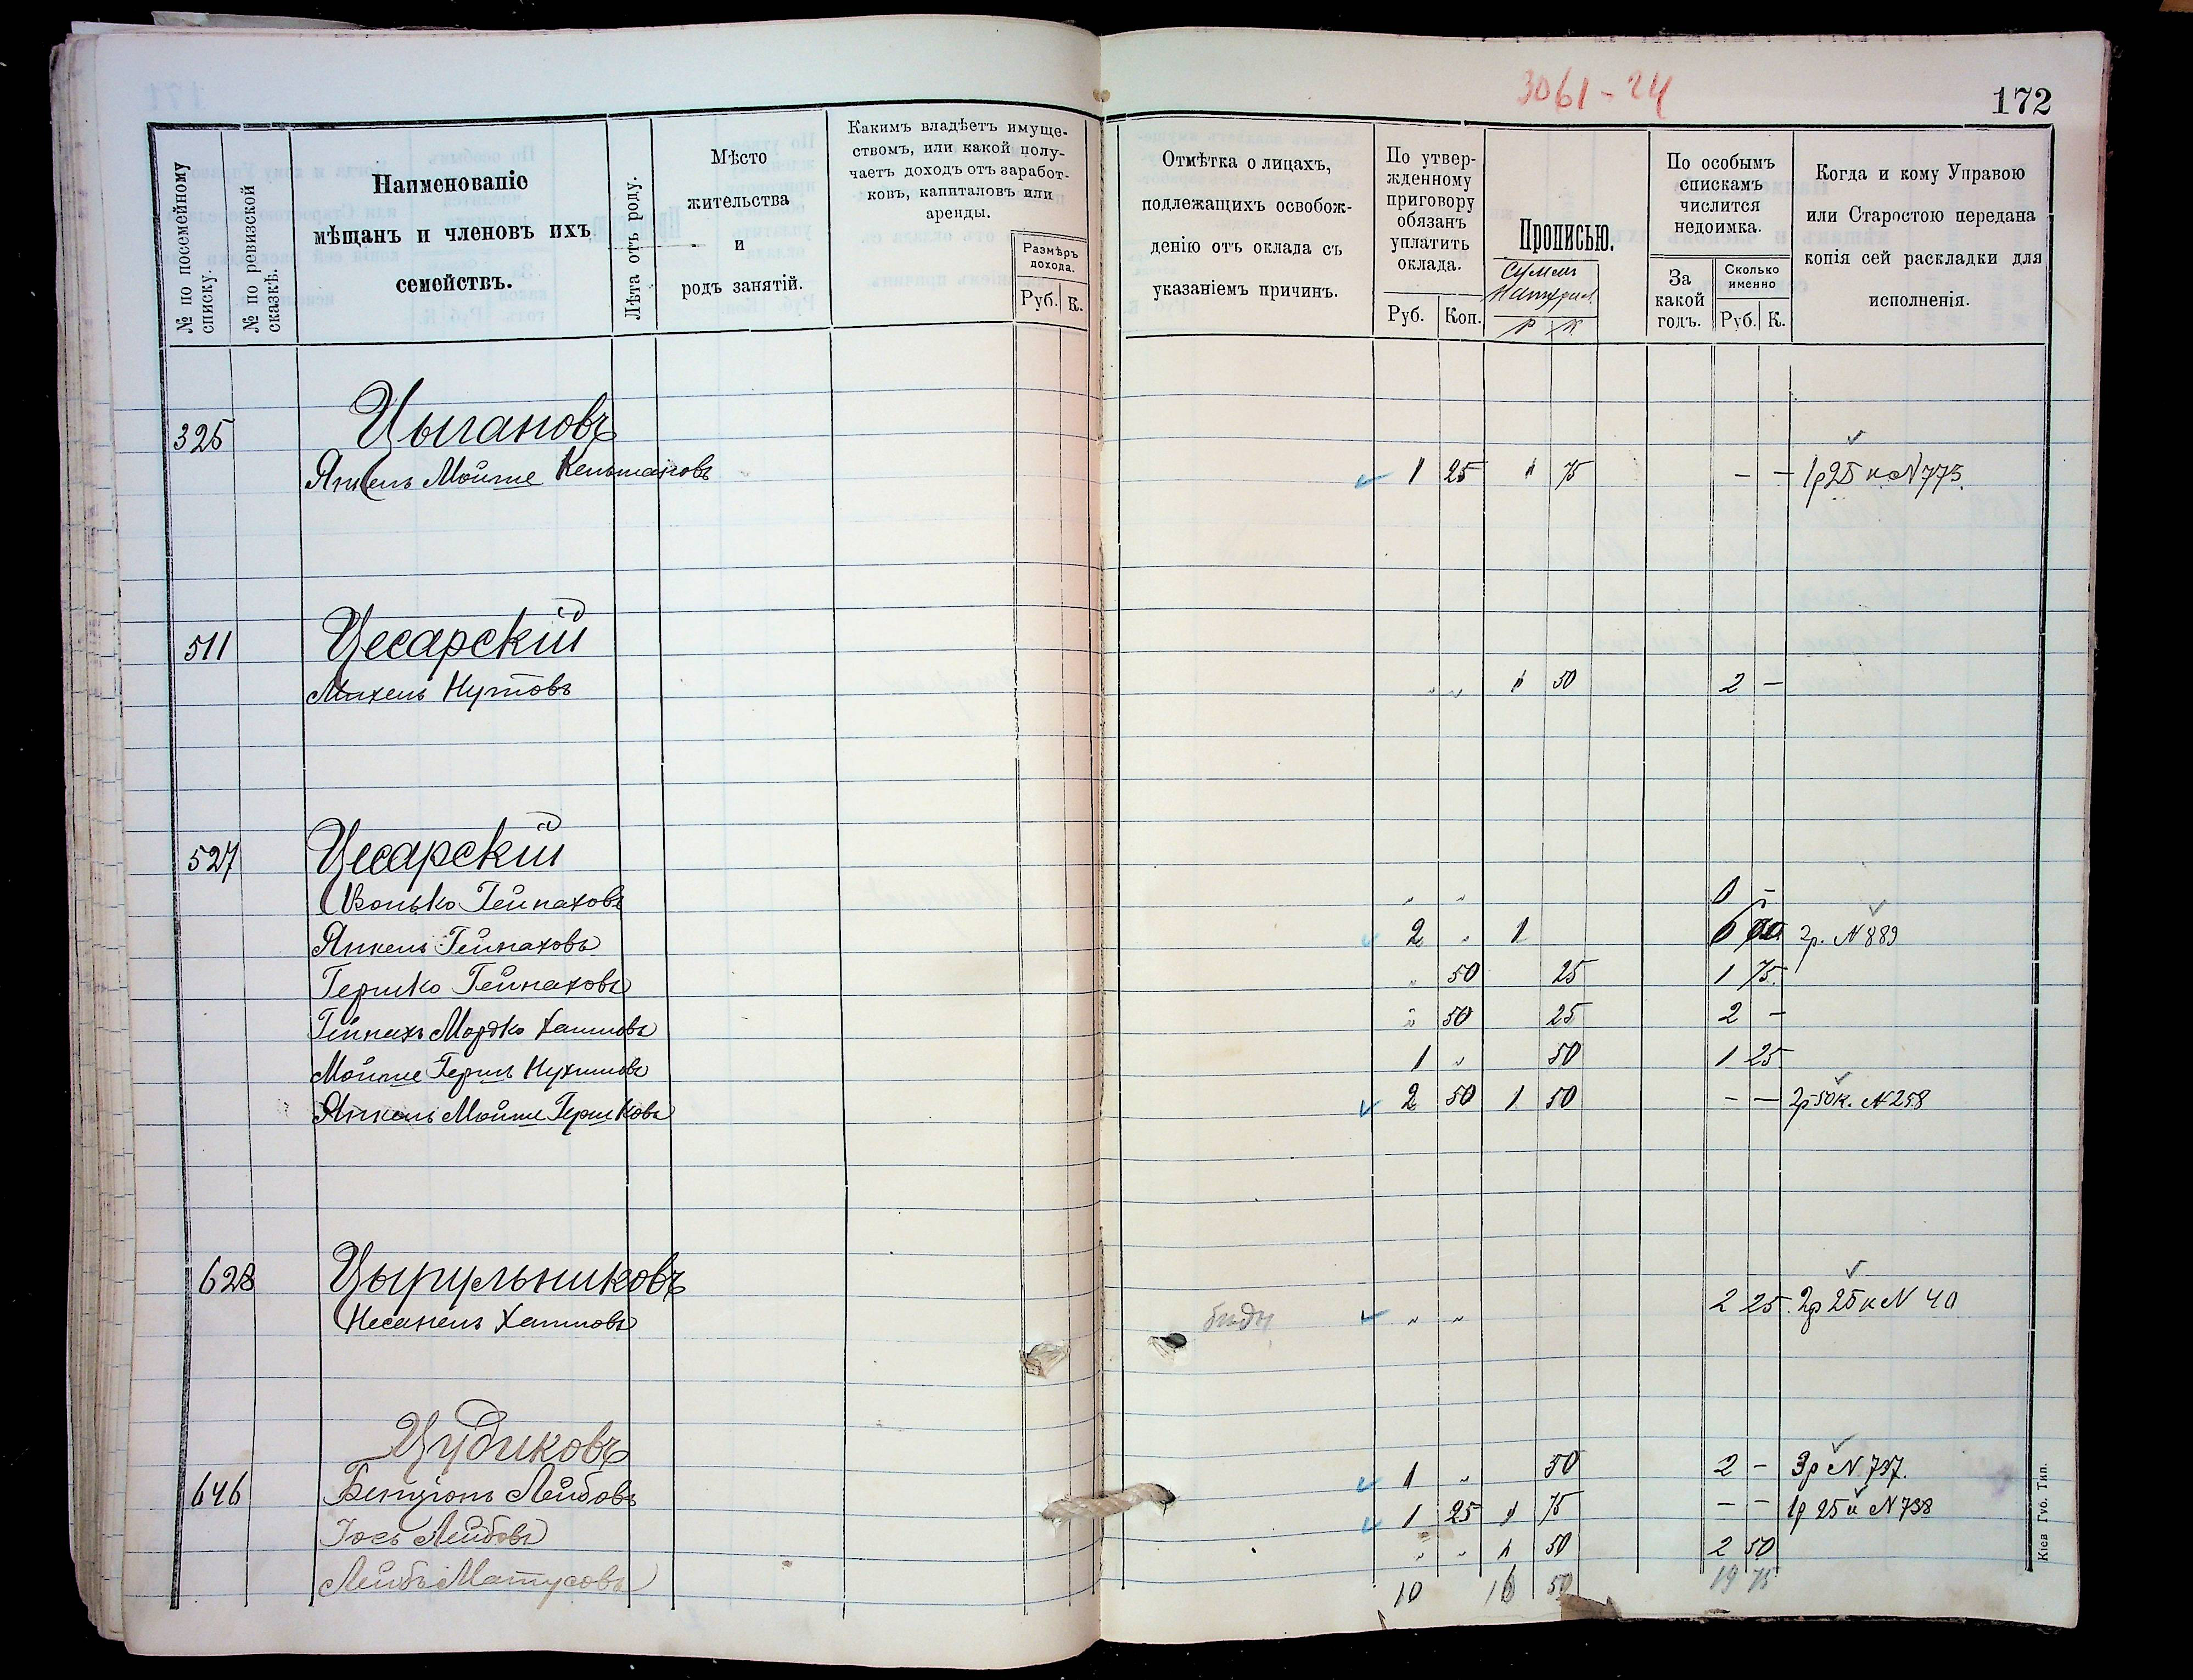 3061-24
172
№ по посемейному списку.
№ по ревизской сказкѣ.
Наименованіе
мѣщанъ и членовъ ихъ
семействъ.
Лѣта отъ роду.
Мѣсто
жительства
и
родъ занятій.
Какимъ владѣетъ имуще-
ствомъ, или какой полу-
чаетъ доходъ отъ заработ-
ковъ, капиталовъ или
аренды.
Размѣръ
дохода.
Руб. К.
Отмѣтка о лицахъ,
подлежащихъ освобож-
денію отъ оклада съ
указаніемъ причинъ.
По утвер-
жденному
приговору
обязанъ
уплатить
оклада.
Руб. Коп.
Прописью.
Р К
По особымъ
спискамъ
числится
недоимка.
За
какой
годъ.
Сколько
именно
Руб. К.
Когда и кому Управою
или Старостою передана
копія сей раскладки для
исполненія.
325 Цыгановъ
Янкель Мойше 1 25 75 – – 1р 25 к N 775.
511 Цесарскій
Михель Нутовъ " " 50 2 –
527 Цесарскій
Волько Гейнаховъ " "
Янкель Гейнаховъ 2 " 1 6 2р. N 889
Гершко Гейнаховъ " 50 25 1 75
Гейнахъ Мордко Хаимовъ " 50 25 2 –
Мойше Герш Нухимовъ 1 " 50 1 25
Янкель Мойше Гершковъ 2 50 1 50 – – 2р 50к. N 258
628 Цырульниковъ
Несанель Хаимовъ " " 2 25 2р 25 к N 40
Цудиковъ
646 Бенціонъ Лейбовъ 1 " 50 2 – 3р N 737.
Іось Лейбовъ 1 25 75 – – 1р 25 к N 738
Лейбъ Матусовъ " " 50 2 50
10 50 19 75
Кіев. Губ. Тип.